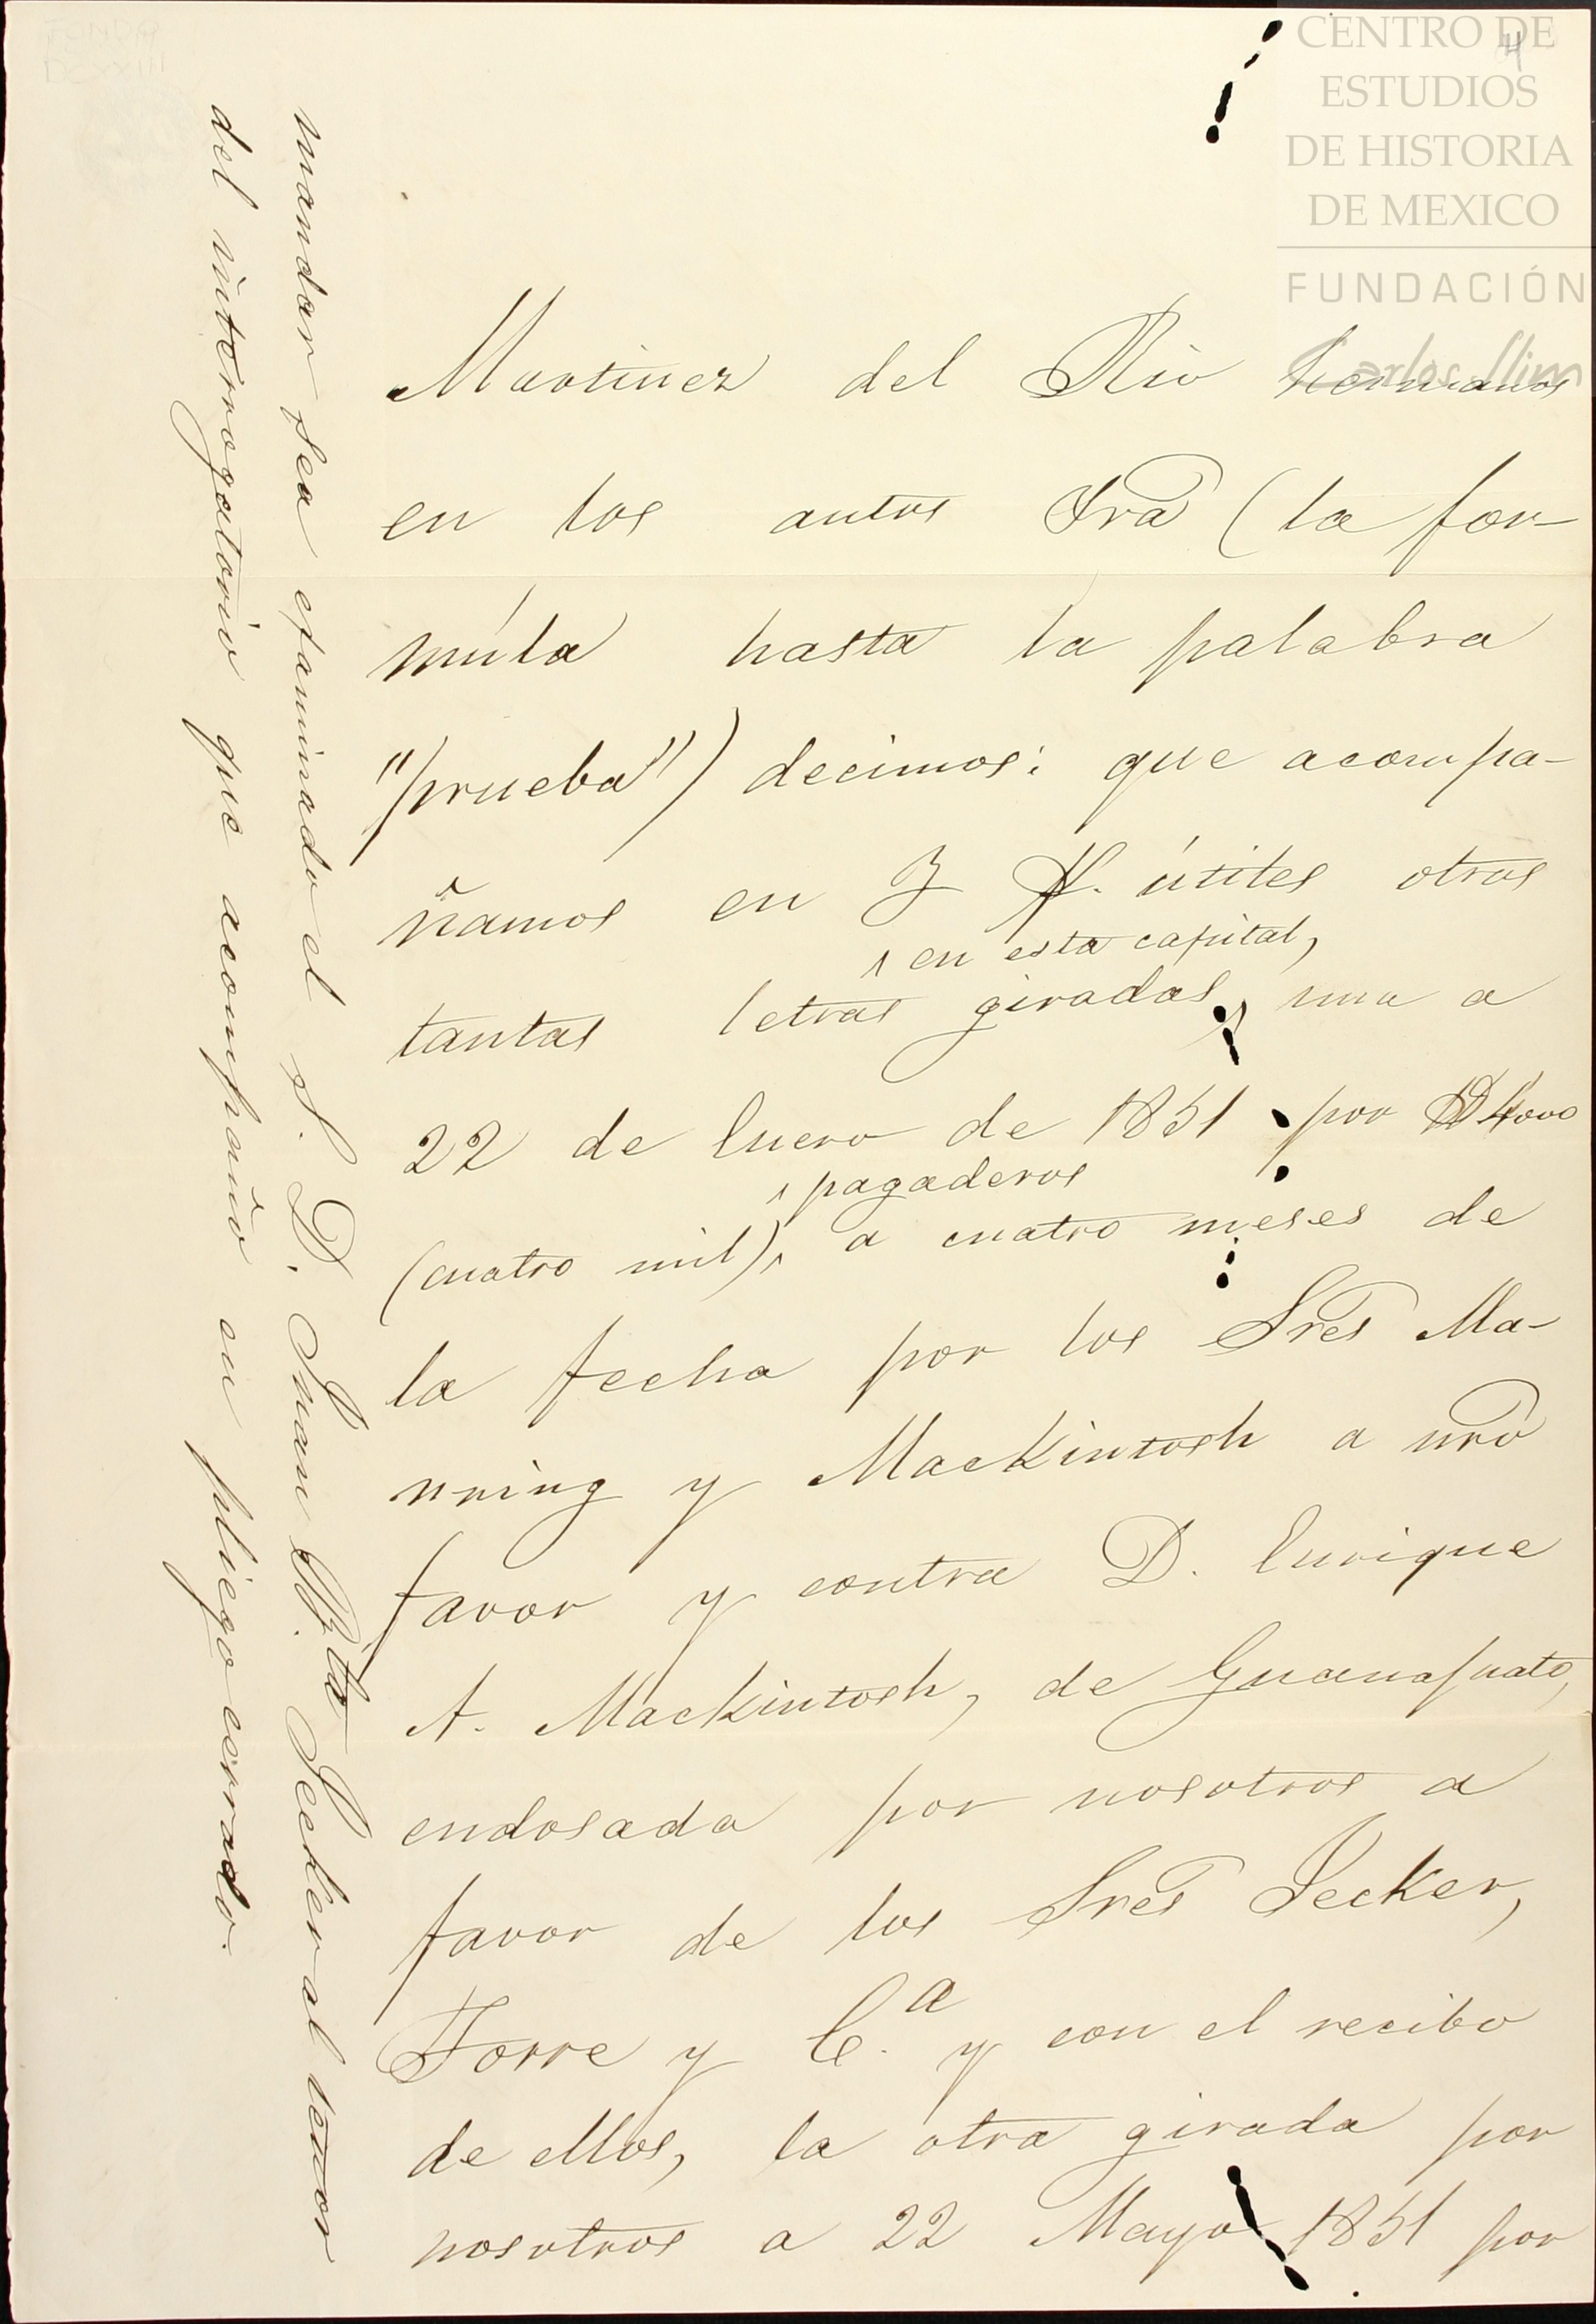 CENTRO DE
ESTUDIOS
DE HISTORIA
DE MEXICO
FUNDACIÓN
Carlos Slim
4
FONDO
DCXXIII
Martinez del Rio hermanos
en los autos Srã (la for-
múla hasta la palabra
"prueba") decimos: que acompa-
ñamos en f. útiles otras
en esta capital,
tantas letras giradas, una a
22 de Enero de 1851 por $4000
pagaderos
(cuatro mil), a cuatro meses de
la fecha por los Sres Ma-
nning y MacKintosh a nrõ
favor y contra D. Enrique
A. MacKintosh, de Guanajuato,
endosada por nosotros a
favor de los Sres Jecker,
Torre y C.a y con el recibo
de ellos, la otra girada por
nosotros a 22 Mayo 1851 por
mandar sea examinado el S. D. Juan Bta Jecker al tenor
del interrogatorio que acompaño en pliego cerrado.